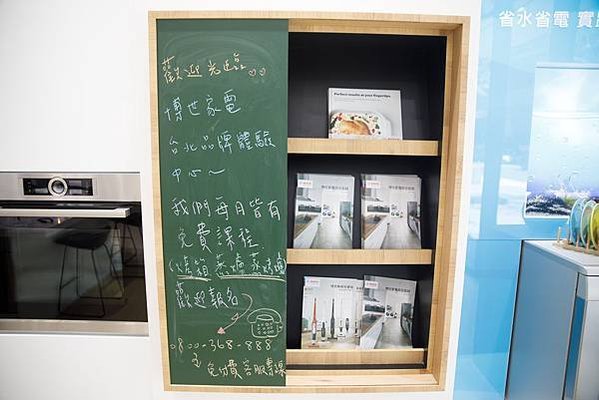 歡迎光臨
博世家電
台北品牌體驗
中心～
我們每日皆有
免費課程
歡迎報名
0800-368-888
免付費客服專線
Perfect results at your fingertips.
省水省電 實